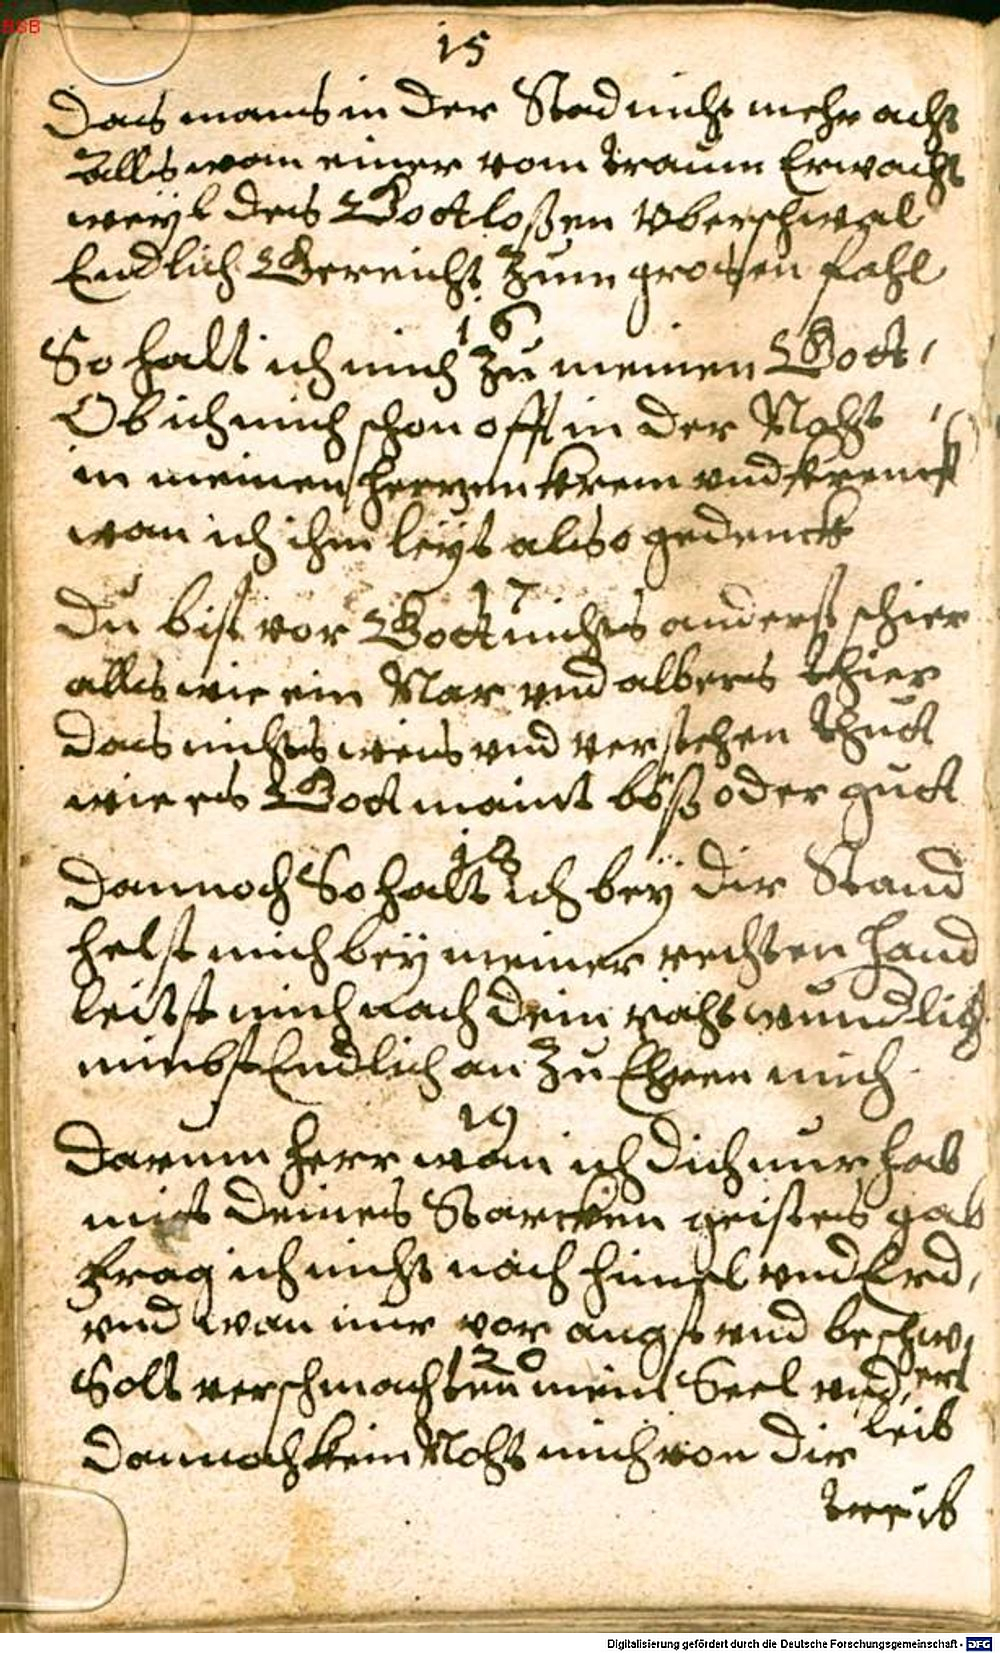 BSB
15
Das mans in der Stad nicht mehr acht
Alls wan einer vom traum Erwacht
weyl des Gottloßen Uberschwal
Endlich Gereicht zum grosen fahl
16
So halt ich mich zu meinen Gott,
Ob ich mich schon offt in der Noht
in meinen herzen krem und krenck
wan ich ihm leyt also gedenck
17
Du bist vor Gott nichts anderst schier
alls wie ein Nar und albers thier
das nichts weis und verstehen thutt
wie es Gott maint böß oder gutt
18
Dannoch So halt ich bey dir Stand
helst mich bey meiner rechten Hand
leitst mich nach dein raht wundlich
nimbst Endlich an zu Ehren mich
19
Darum herr wan ich dich nur hab
mit deines Starcken geistes gab
frag ich nicht nach himel und Erd,
und wan mir vor angst und beschw,
ert
20
Solt verschmachten mein Seel und
leib
Dannoch kein Noht mich von dir
treib
Digitalisierung gefördert durch die Deutsche Forschungsgemeinschaft - DFG